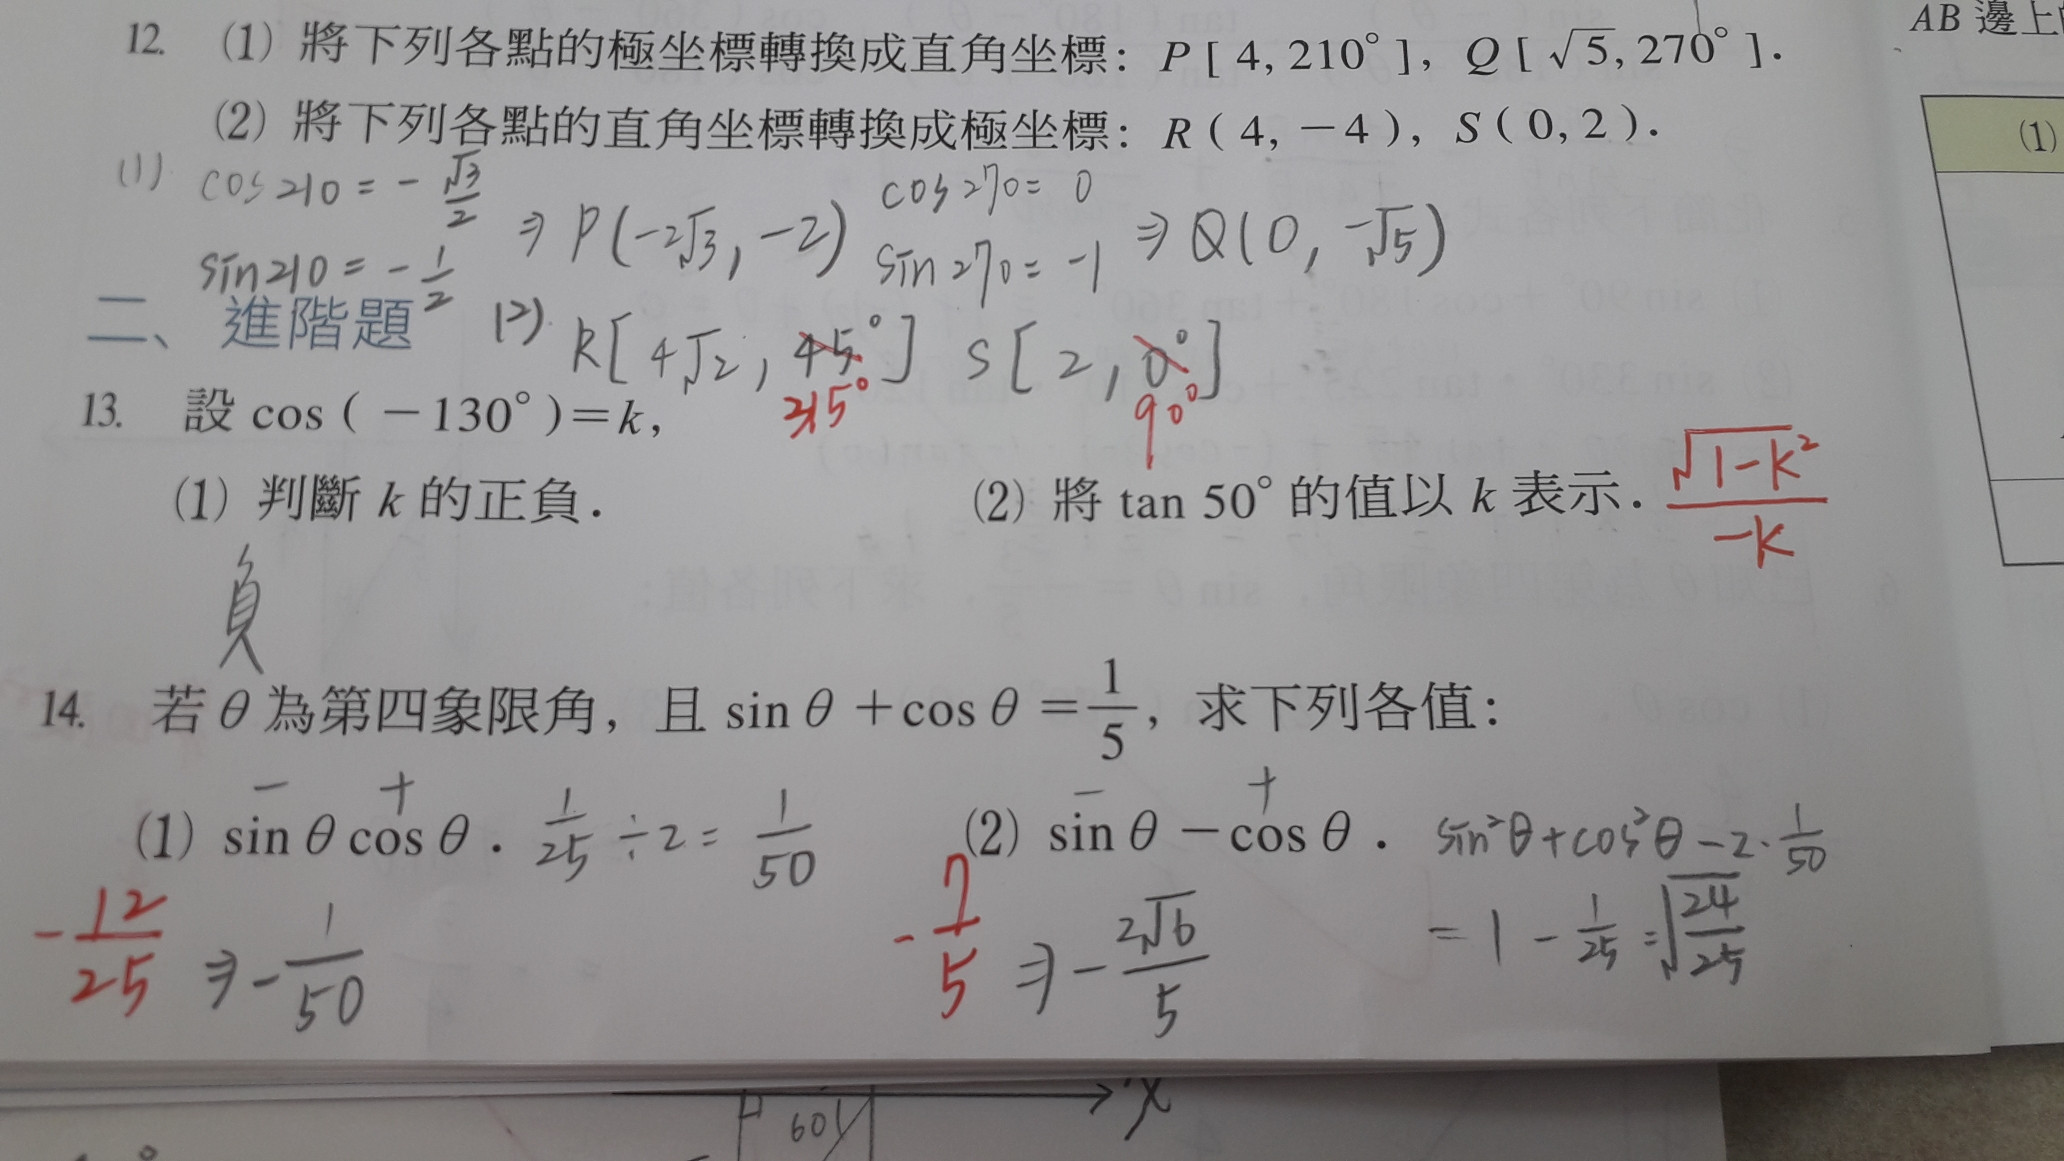 12. (1) 將下列各點的極坐標轉換成直角坐標：P [ 4, 210° ]，Q [ √5, 270° ]．
(2) 將下列各點的直角坐標轉換成極坐標：R ( 4, −4 )，S ( 0, 2 )．
(1) cos210 = -√3/2
sin210 = -1/2
⇒ P(-2√3, -2)
cos270 = 0
sin270 = -1
⇒ Q(0, -√5)
二、進階題
(2). R[4√2, 45°] S[2, 0°]
315° 90°
13. 設 cos ( −130° )=k，
(1) 判斷 k 的正負．
(2) 將 tan 50° 的值以 k 表示．
√1-k²/-k
負
14. 若 θ 為第四象限角，且 sin θ +cos θ =1/5，求下列各值：
- +
(1) sin θ cos θ．
1/25 ÷ 2 = 1/50
-12/25 ⇒ -1/50
- +
(2) sin θ −cos θ．
sin²θ+cos²θ-2·1/50
= 1 - 1/25 = √24/25
-7/5 ⇒ -2√6/5
AB 邊上
(1)
x
60